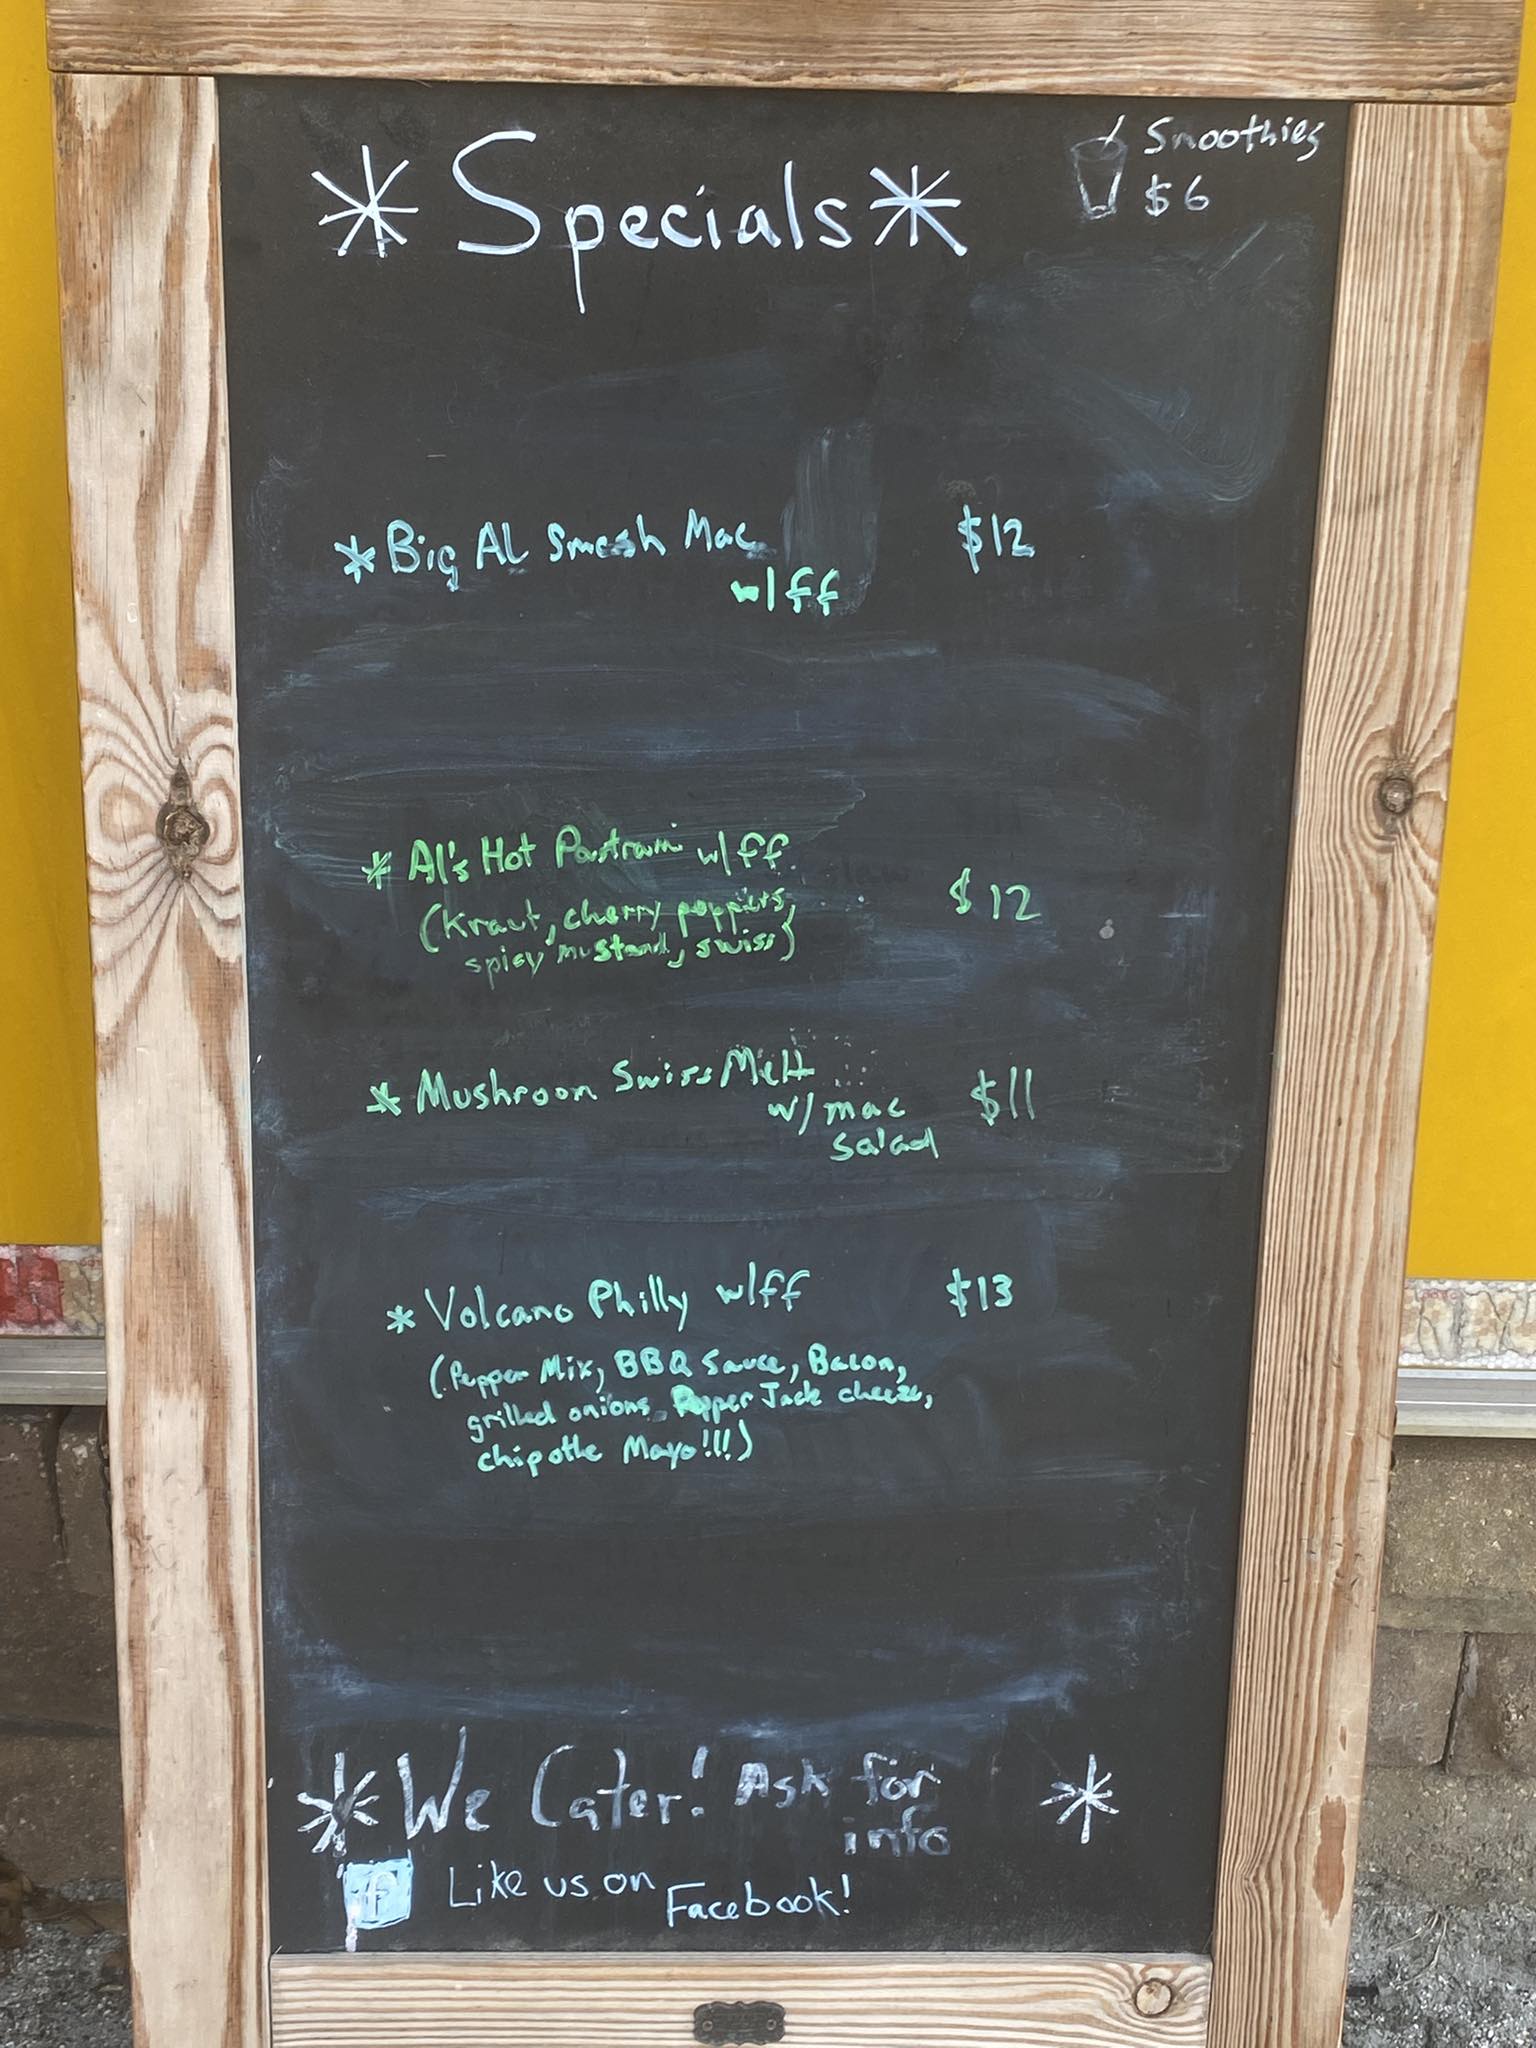 *Specials*
Smoothies
$6
*Big Al Smash Mac $12
w/ff
*Al's Hot Pastrami w/ff
$12
(Kraut, cherry poppers,
spicy mustard, swiss)
*Mushroom Swiss Melt $11
w/mac
salad
*Volcano Philly w/ff $13
(Pepper Mix, BBQ Sauce, Bacon,
grilled onions, Pepper Jack cheeze,
chipotle Mayo!!!)
*We Cater! Ask for *
info
f Like us on
Facebook!